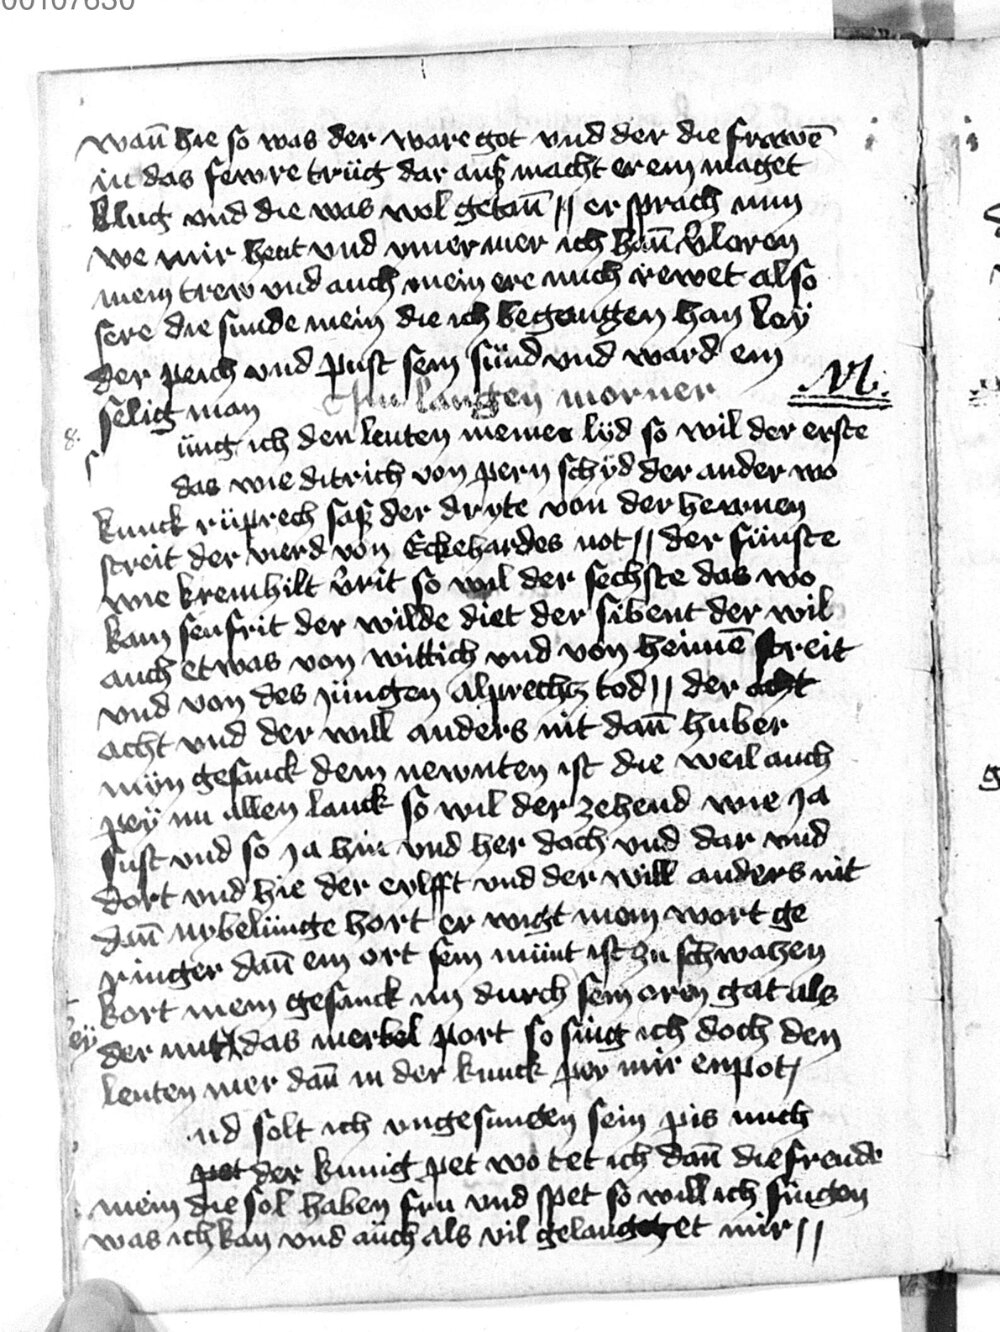 00107630
wañ hie so was der ware got vnd der die frawē
in das fewre trüg dar auß macht er ein maget
klug vnd die was wol getañ // er sprach nun
we mir heut vnd vmer mer ich hañ v̓loren
mein trew vnd auch mein ere mich rewet also
sere die sunde mein die ich begangen han loÿ
der peich vnd pust sein sünd vnd ward ein
selig man Im langen morner VI.
8. üng ich den leuten meine lyd so wil der erste
das wie ditrich von pern schyd der ander wo
kunck rüprech saß der dryte von der hewnen
streit der vierd von Eckehardes not // der fünfte
wie kremhilt v̓rit so wil der sechste das wo
kam seufrit der wilde diet der sibent der wil
auch etwas von wittich vnd von heimē streit
vnd von des jüngen alprechtz tod // der acht
acht vnd der will anders nit dañ huber
myn gesanck dem newnten ist die weil auch
peÿ im allen lanck so wil der zehend wie ja
sust vnd so ja hin vnd her doch vnd dar vnd
dort vnd hie der eylfft vnd der will anders nit
dañ nybelünge hort er wigt mein wort ge
ringer dañ ein ort sein münt ist zu schwachen
kort mein gesanck im durch sein oren gat als
der mit das merbel port so sing ich doch den
leuten mer dañ in der kunck pey mir enpot
nd solt ich vngesungen sein pis mich
der kunig pet wo tet ich dañ die freude
mein die sol haben fru vnd spet so will ich singen
was ich kan vnd auch als vil gelanget mir //